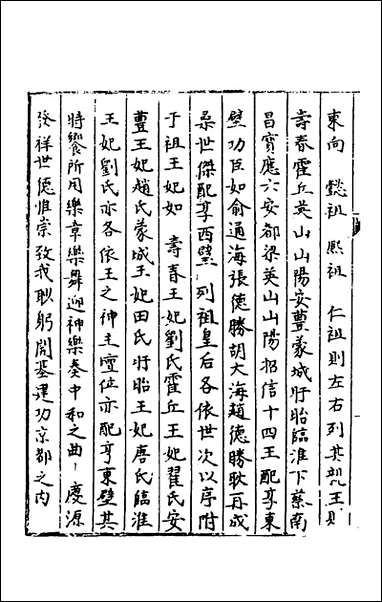 東向　懿祖　熙祖　仁祖則左右列其親王則
壽春霍丘英山山陽安豊蒙城盱眙臨淮下蔡南
昌寳應六安都梁英山山陽招信十四王配享東
壁功臣如俞通海張德勝胡大海趙德勝耿再成
桑世傑配享西壁　列祖皇后各依世次以序附
于祖王妃如　壽春王妃劉氏霍丘王妃翟氏安
豊王妃趙氏蒙城王妃田氏盱眙王妃唐氏臨淮
王妃劉氏亦各依王之神主壇位亦配享東壁其
時饗所用樂章樂舞迎神樂奏中和之曲　慶源
發祥世德惟崇致我眇躬開基建功京都之内